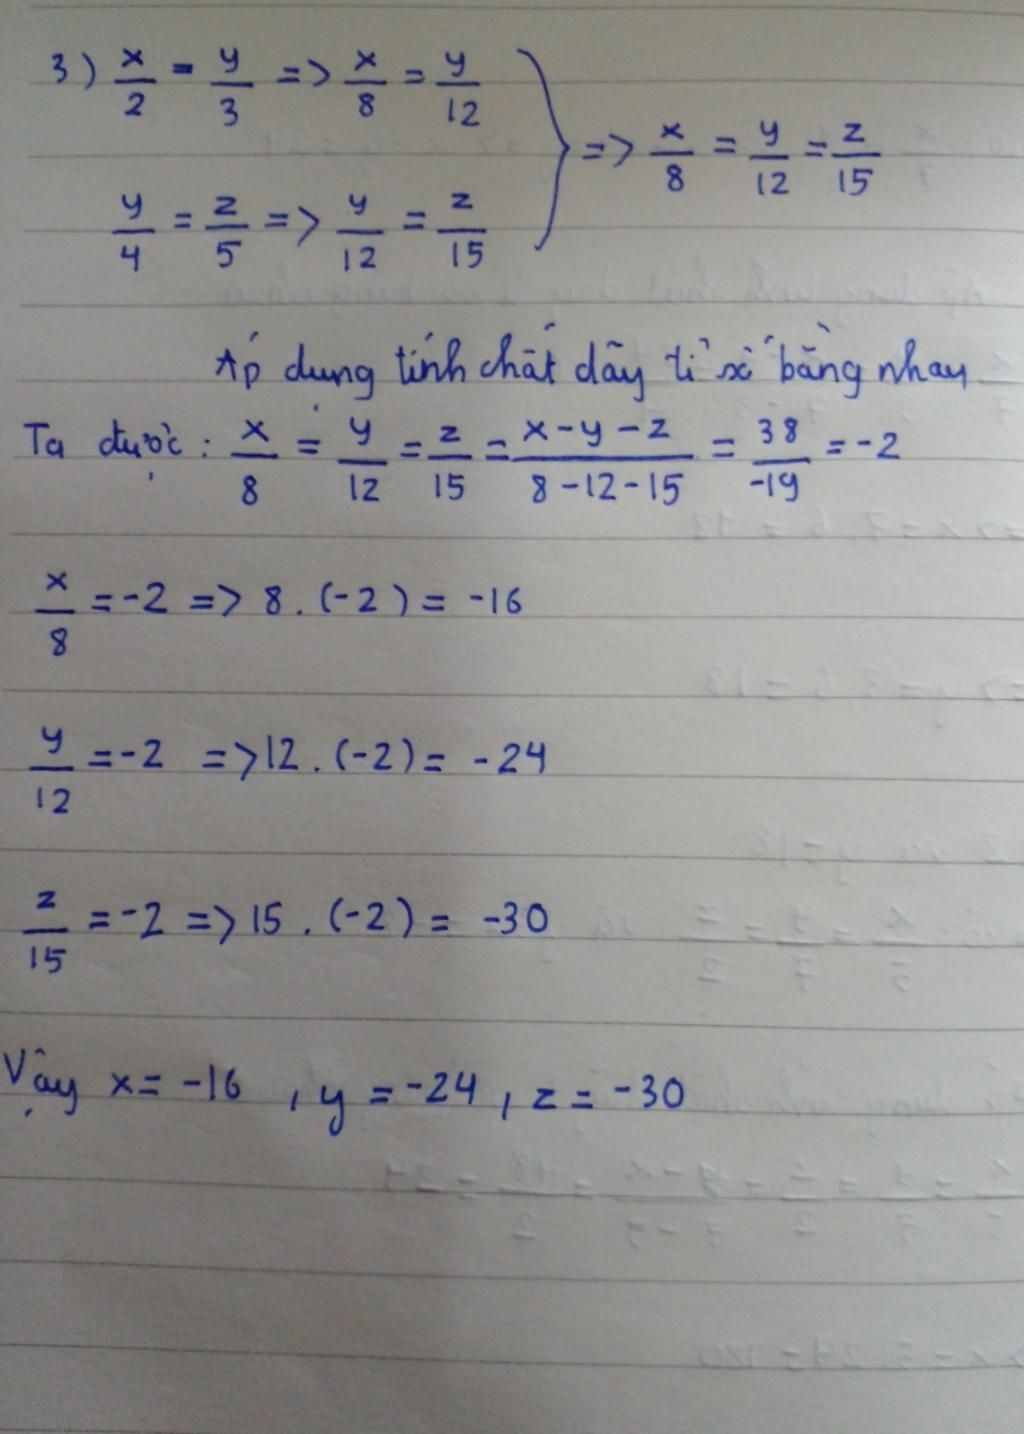 3) x/2 = y/3 => x/8 = y/12
y/4 = z/5 => y/12 = z/15
=> x/8 = y/12 = z/15
Áp dụng tính chất dãy tỉ số bằng nhau
Ta được: x/8 = y/12 = z/15 = x-y-z/8-12-15 = 38/-19 = -2
x/8 = -2 => 8.(-2) = -16
y/12 = -2 => 12.(-2) = -24
z/15 = -2 => 15.(-2) = -30
Vậy x = -16, y = -24, z = -30